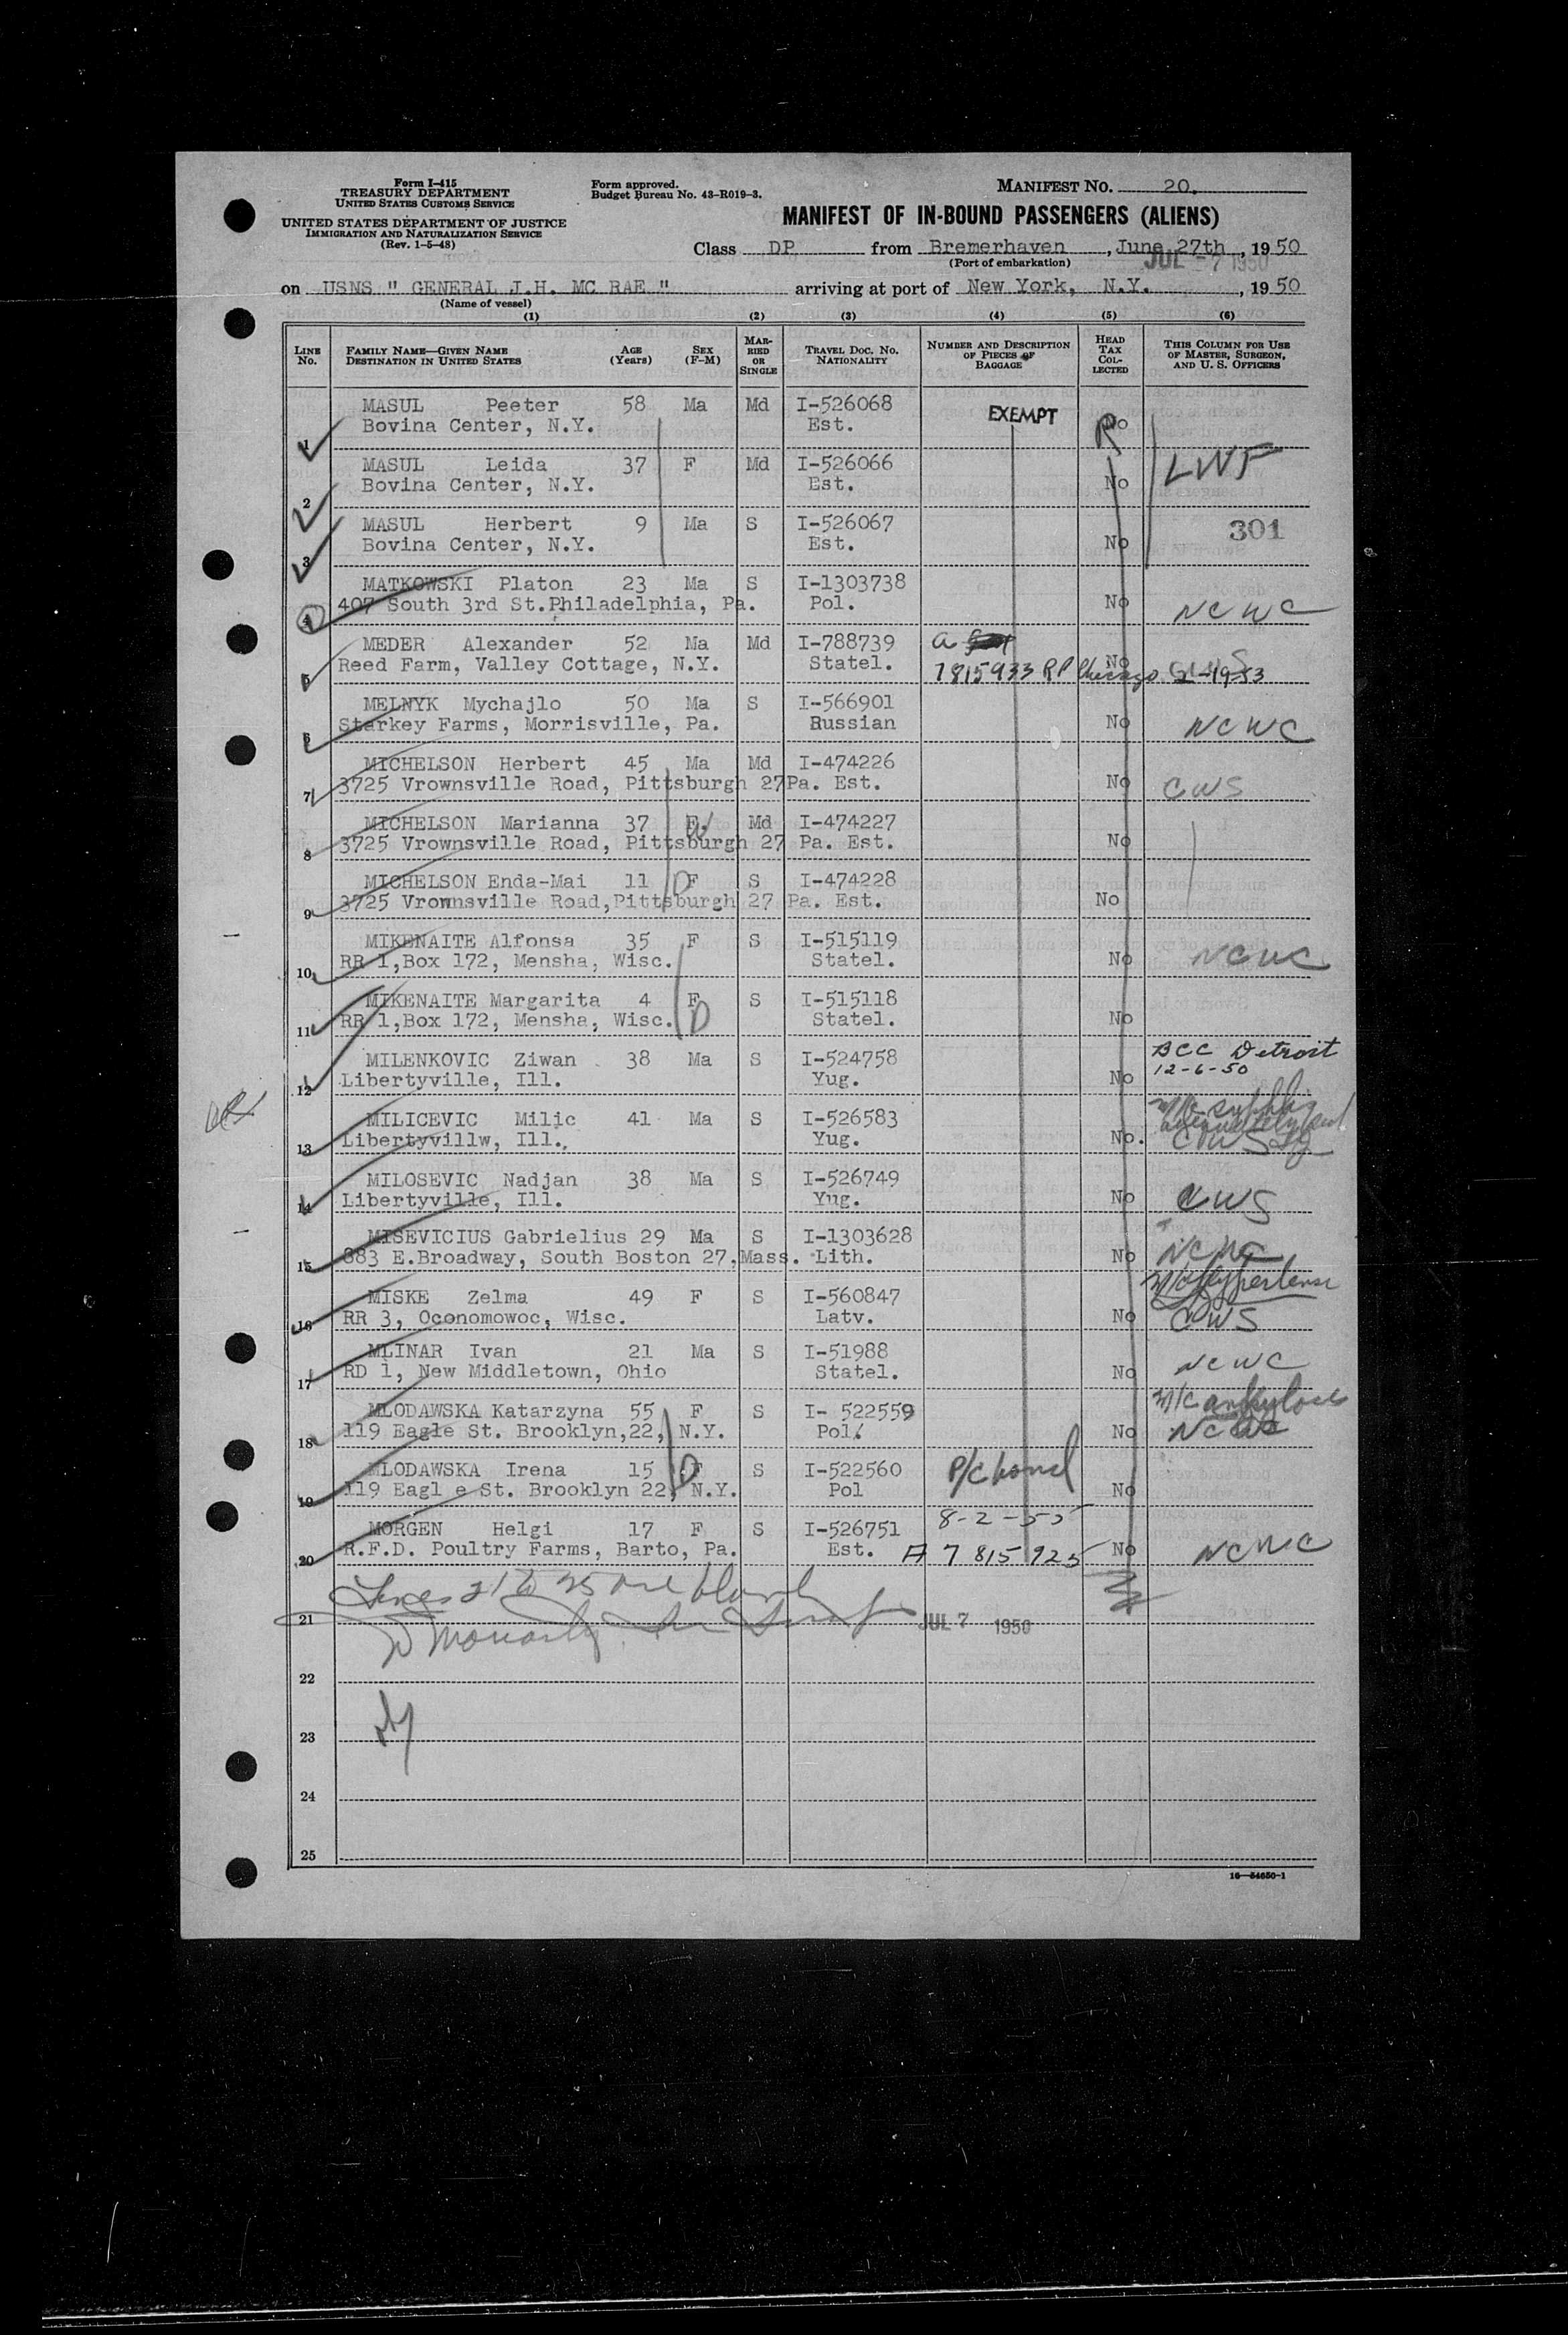 Form I-415
TREASURY DEPARTMENT
UNITED STATES CUSTOMS SERVICE
UNITED STATES DEPARTMENT OF JUSTICE
IMMIGRATION AND NATURALIZATION SERVICE
(Rev. 1-5-48)
Form approved.
Budget Bureau No. 43-R019-3.
MANIFEST NO. 20.
MANIFEST OF IN-BOUND PASSENGERS (ALIENS)
Class DP from Bremerhaven, June 27th, 1950
(Port of embarkation)
JUL -7 1950
on USNS " GENERAL J.H. MC RAE " arriving at port of New York, N.Y., 1950
(Name of vessel)
(1) (2) (3) (4) (5) (6)
LINE NO. FAMILY NAME—GIVEN NAME DESTINATION IN UNITED STATES AGE (Years) SEX (F-M) MARRIED OR SINGLE TRAVEL DOC. NO. NATIONALITY NUMBER AND DESCRIPTION OF PIECES OF BAGGAGE HEAD TAX COLLECTED THIS COLUMN FOR USE OF MASTER, SURGEON, AND U. S. OFFICERS
MASUL Peeter 58 Ma Md I-526068 EXEMPT
1 Bovina Center, N.Y. Est. No
MASUL Leida 37 F Md I-526066 LWF
2 Bovina Center, N.Y. Est. No
MASUL Herbert 9 Ma S I-526067 301
3 Bovina Center, N.Y. Est. No
MATKOWSKI Platon 23 Ma S I-1303738
4 407 South 3rd St.Philadelphia, Pa. Pol. No NCWC
MEDER Alexander 52 Ma Md I-788739 a
5 Reed Farm, Valley Cottage, N.Y. Statel. 7815933 RP Chicago No 2-19-53
MELNYK Mychajlo 50 Ma S I-566901
6 Starkey Farms, Morrisville, Pa. Russian No NCWC
MICHELSON Herbert 45 Ma Md I-474226
7 3725 Vrownsville Road, Pittsburgh 27Pa. Est. No CWS
MICHELSON Marianna 37 F Md I-474227
8 3725 Vrownsville Road, Pittsburgh 27 Pa. Est. No
MICHELSON Enda-Mai 11 F S I-474228
9 3725 Vrownsville Road,Pittsburgh 27 Pa. Est. No
MIKENAITE Alfonsa 35 F S I-515119
10 RR 1,Box 172, Mensha, Wisc. Statel. No NCWC
MIKENAITE Margarita 4 F S I-515118
11 RR 1,Box 172, Mensha, Wisc. Statel. No
MILENKOVIC Ziwan 38 Ma S I-524758 BCC Detroit
12 Libertyville, Ill. Yug. No 12-6-50
MILICEVIC Milic 41 Ma S I-526583
13 Libertyvillw, Ill. Yug. No. CWS
MILOSEVIC Nadjan 38 Ma S I-526749
14 Libertyville, Ill. Yug. No CWS
MISEVICIUS Gabrielius 29 Ma S I-1303628
15 883 E.Broadway, South Boston 27,Mass. Lith. No NCWC
MISKE Zelma 49 F S I-560847
16 RR 3, Oconomowoc, Wisc. Latv. No CWS
MLINAR Ivan 21 Ma S I-51988
17 RD 1, New Middletown, Ohio Statel. No NCWC
MLODAWSKA Katarzyna 55 F S I- 522559
18 119 Eagle St. Brooklyn,22, N.Y. Pol. No NCWC
MLODAWSKA Irena 15 F S I-522560 P/C bond
19 119 Eagl e St. Brooklyn 22, N.Y. Pol No
MORGEN Helgi 17 F S I-526751 8-2-55
20 R.F.D. Poultry Farms, Barto, Pa. Est. A 7 815 925 No NCWC
Lines 21 to 25 are blank
21 JUL 7 1950
22
23
24
25
16—54650-1